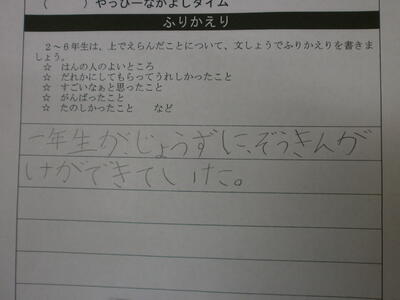 (　　　)やっぴーなかよしタイム
ふりかえり
２～６年生は、上でえらんだことについて、文しょうでふりかえりを書きま
しょう。
☆　はんの人のよいところ
☆　だれかにしてもらってうれしかったこと
☆　すごいなぁと思ったこと
☆　がんばったこと
☆　たのしかったこと　　など
一年生が、じょうずに、ぞうきんが
けができていた。